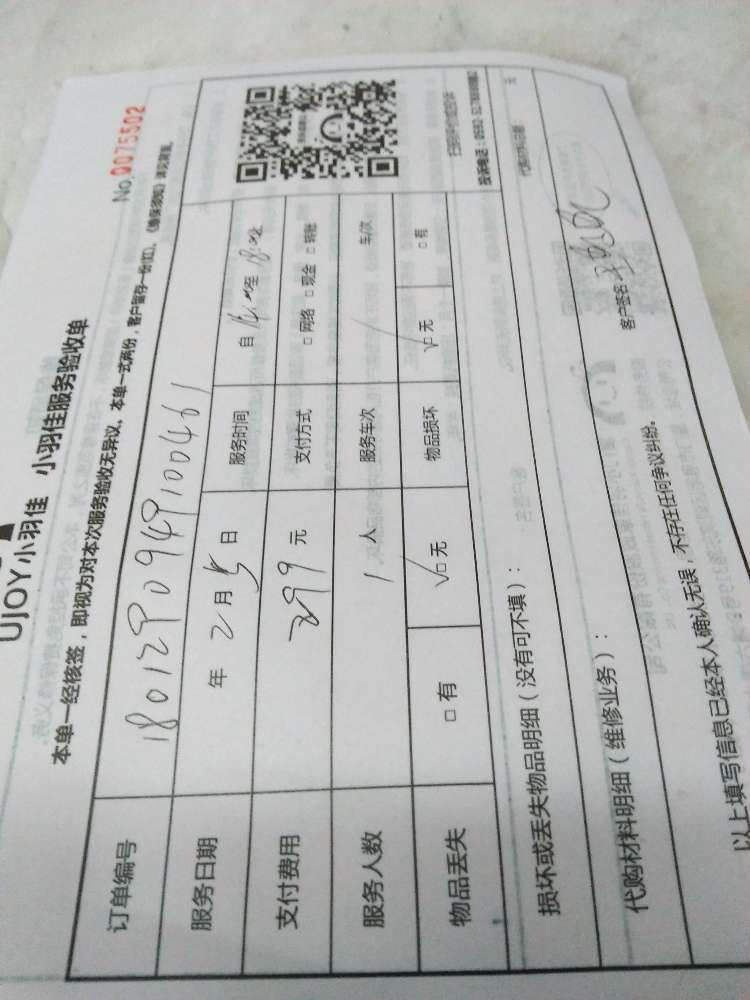 UJOY小羽佳 小羽佳服务验收单
No.0075502
本单一经核签，即视为对本次服务验收无异议。本单一式两份，客户留存一份（红），《维保须知》详见背面。
订单编号 1801290949100461
服务日期 年 2 月 5 日 服务时间 自 14:00 至 18:00
支付费用 299 元 支付方式 □ 网络 □ 现金 □ 转账
服务人数 1 人 服务车次 / 车/次
物品丢失 □ 有 √□ 无 物品损坏 √□ 无 □ 有
投诉电话：0592-
损坏或丢失物品明细（没有可不填）：
代购材料明细（维修业务）：
元
以上填写信息已经本人确认无误，不存在任何争议纠纷。
客户签名